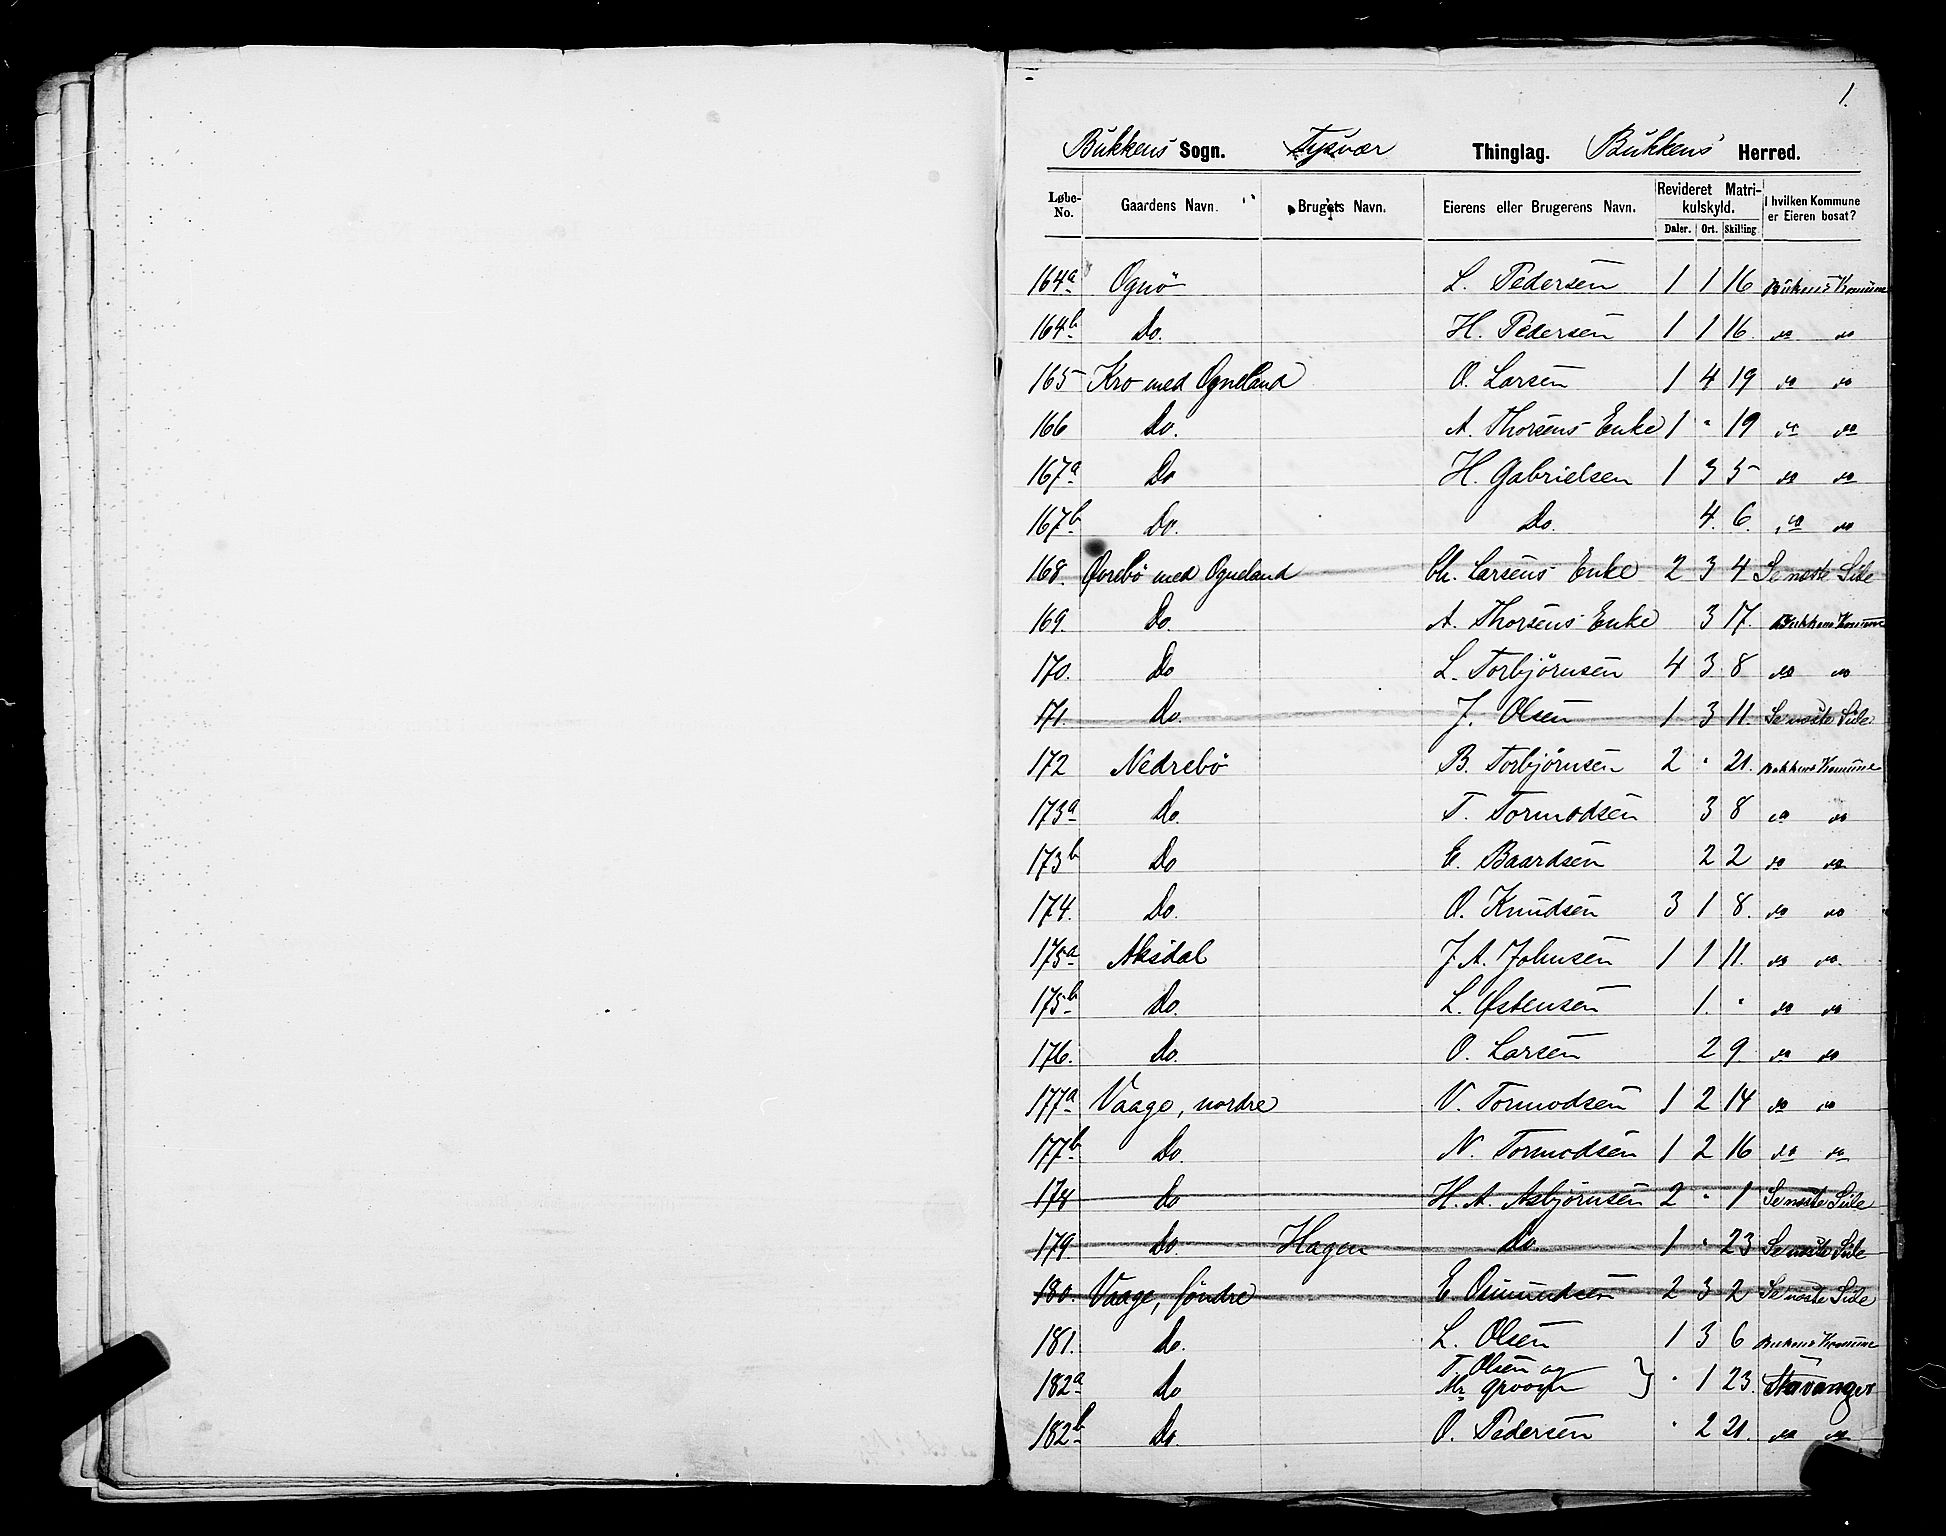 1.
Bukkens Sogn. Tysvær Thinglag. Bukkens Herred.
Løbe-No. Gaardens Navn. Brugets Navn. Eierens eller Brugerens Navn. Revideret Matrikulskyld. I hvilken Kommune er Eieren bosat?
Daler. Ort. Skilling
164a Ognö L. Pedersen 1 1 16 Bukkens Kommune
164b Do. H. Pedersen 1 1 16. do do
165 Kro med Ogneland O. Larsen 1 4 19 do do
166 Do. A. Thorsens Enke 1 " 19 do do
167a Do H. Gabrielsen 1 3 5 do do
167b Do. Do. 4. 6. do do
168. Øvrebö med Ogneland Ch. Larsens Enke 2 3 4 Se næste Side
169. Do. A. Thorsens Enke 3 17. Bukkens Kommune
170. Do L. Torbjörnsen 4 3 8 do do
171. Do. J. Olsen 1 3 11. Se næste Side
172 Nedrebö B. Torbjörnsen 2 " 21. Bukkens Kommune
173a Do. T. Tormodsen 3 8 do do
173b Do E. Baardsen 2 2 do do
174. Do. O. Knudsen 3 1 8. do do
175a Aksdal J. A. Johnsen 1 1 11. do do.
175b Do. L. Østensen 1. " do do
176. Do. O. Larsen 2 9. do do
177a Vaage, nordre V. Tormodsen 1 2 14 do do
177b Do. N. Tormodsen 1 2 16 do do
178 Do H. A. Asbjörnsen 2 " 1 Se næste Side
179. Do. Hagen Do. 1 " 23 Se næste Side
180. Vaage, söndre E. Osmundsen 2 3 2 Se næste Side
181. Do. L. Olsen 1 3 6 Bukkens Kommune
182a Do T. Olsen og " 1 23. Stavanger
182b Do. O. Pedersen " 2 21. do do